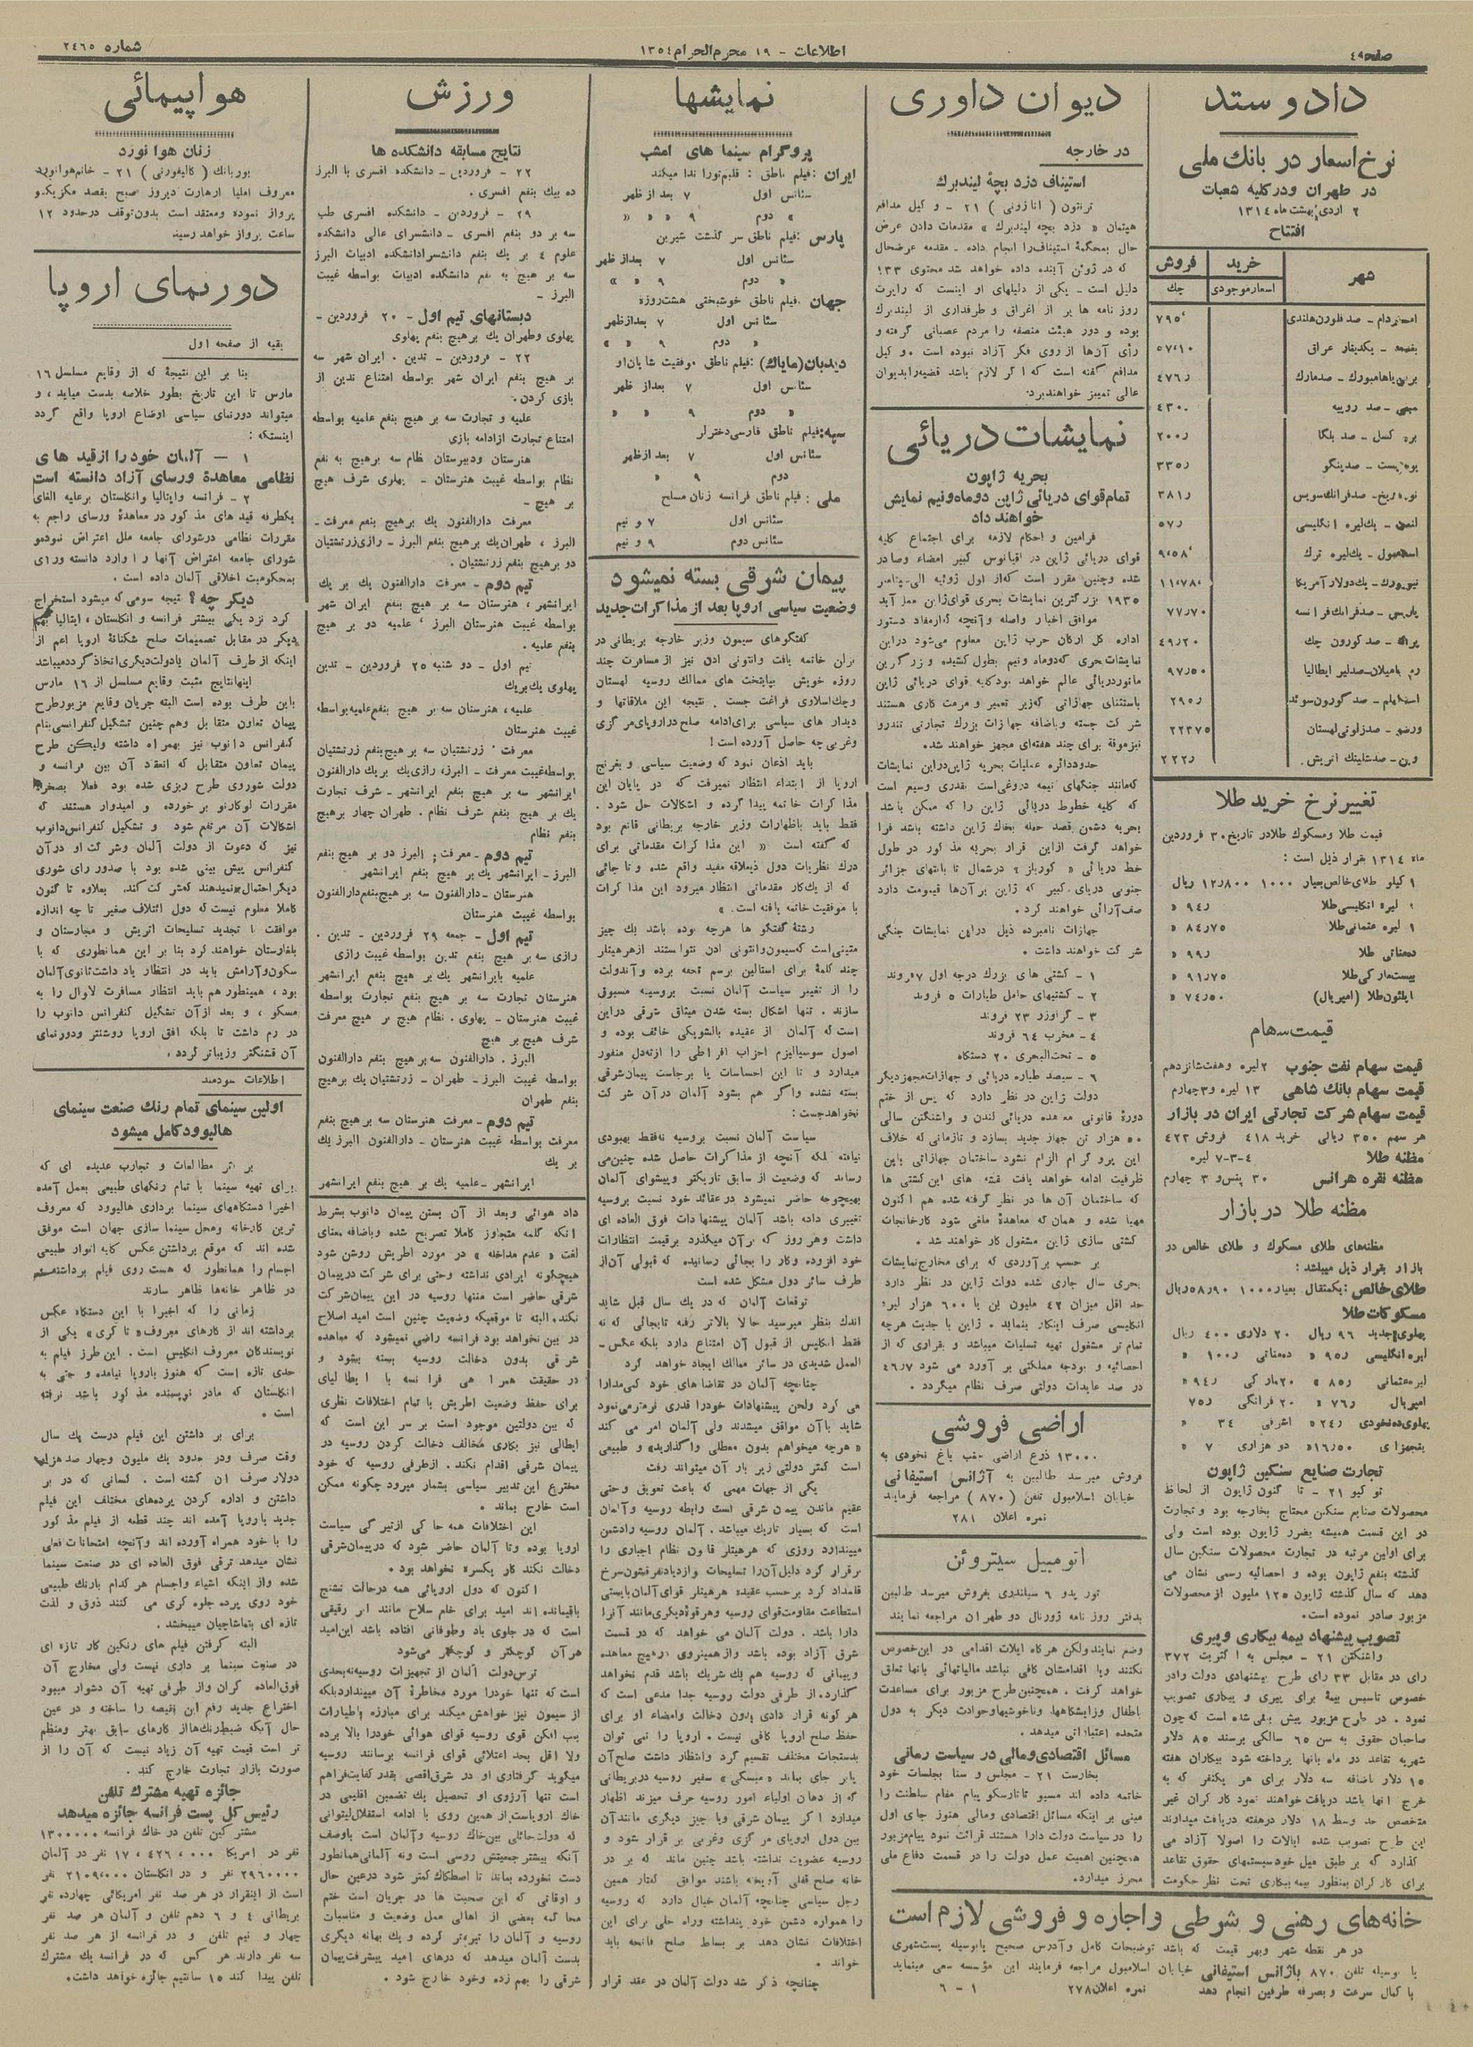 صفحه ٤
اطلاعات - ١٩ محرم الحرام ١٣٥٤
شماره ٢٤٦٥
داد و ستد
نرخ اسعار در بانك ملی
در طهران و در کلیه شعبات
٢ اردی بهشت ماه ١٣١٤
افتتاح
شهر
خرید
فروش
اسعار موجودی
چك
امستردام - صد فلورن هلندی
بغداد - یکدینار عراق
برلن یا هامبورك - صد مارك
بمبی - صد روپیه ٤٣٠
بروکسل - صد بلگا
بوداپست - صد پنگو
نویورك - یك دولار آمریکا
لندن - یك لیره انگلیسی
اسلامبول - یك لیره ترك
پاریس - صد فرانك فرانسه ٧٧٫٧٠
پراگ - صد کورون چك ٤٩٫٢٠
رم یا میلان - صد لیر ایطالیا ٩٧٫٥٠
ورشو - صد زلوتی لهستان
وین - صد شلینك اتریش
تغییر نرخ خرید طلا
قیمت طلا و مسکوك طلا در تاریخ ٣٠ فروردین
ماه ١٣١٤ بقرار ذیل است :
١ کیلو طلای خالص بعیار ١٠٠٠ ١٢٫٨٠٠ ریال
١ لیره انگلیسی طلا
١ لیره عثمانی طلا ٨٤٫٧٥ «
بیست مارکی طلا ٩١٫٧٥ «
(امپریال) ٧٤٫٥٠ «
قیمت سهام
قیمت سهام نفت جنوب ٢ لیره و هفت شانزدهم
قیمت سهام بانك شاهی ١٣ لیره و ٣ چهارم
قیمت سهام شرکت تجارتی ایران در بازار
هر سهم ٣٥٠ ریالی خرید ٤١٨ فروش ٤٢٣
مظنه طلا ٤-٣-٧ لیره
مظنه نقره هرانس ٣٠ پنس و ٣ چهارم
مظنه طلا در بازار
مظنه‌های طلای مسکوك و طلای خالص در
بازار بقرار ذیل میباشد :
طلای خالص : یکمثقال بعیار ١٠٠٠ ٥٨٫٩٠ ریال
مسکوکات طلا
پهلوی جدید ٩٦ ریال ٢٠ دلاری ٤٠٠ ریال
تجارت صنایع سنگین ژاپون
توکیو ٢١ - تا کنون ژاپون از لحاظ
محصولات صنایع سنگین محتاج بخارجه بود و تجارت
در این قسمت همیشه بضرر ژاپون بوده است ولی
برای اولین مرتبه در تجارت محصولات سنگین سال
گذشته بنفع ژاپون بوده و احصائیه رسمی نشان می
دهد که سال گذشته ژاپون ١٢٥ ملیون از محصولات
مزبور صادر نموده است.
تصویب پیشنهاد بیمه بیکاری و پیری
واشنگتن ٢١ - مجلس به اکثریت ٣٧٢
رای در مقابل ٣٣ رای طرح پیشنهادی دولت را در
خصوص تاسیس بیمهٔ برای پیری و بیکاری تصویب
نمود . در طرح مزبور پیش بینی شده است که چون
صاحبان حقوق به سن ٦٥ سالگی برسند ٨٥ دلار
شهریه تقاعد در ماه بآنها پرداخته شود بیکاران هفته
١٥ دلار باضافه سه دلار برای هر یکنفر که به
خرج آنها باشد دریافت خواهند نمود کارگران غیر
متخصص حد وسط ١٨ دلار در هفته دریافت میدارند
این طرح تصویب شده ایالات را اصولا آزاد می
گذارد که بر طبق میل خود سیستمهای حقوق تقاعد
برای کارگران بمنظور بیمه بیکاری تحت نظر حکومت
دیوان داوری
در خارجه
استیناف دزد بچهٔ لیندبرك
ترنتون ( اتازونی ) ٢١ - وکیل مدافع
هپتمان « دزد بچه لیندبرك » مقدمات دادن عرض
حال بمحکمهٔ استیناف را انجام داده . مقدمه عرضحال
که در ژوئن آینده داده خواهد شد محتوی ١٣٣
دلیل است - یکی از دلیلهای او اینست که راپرت
روزنامه ها پر از اغراق و طرفداری از لیندبرك
بوده و دور هیئت منصفه را مردم عصبانی گرفته و
رأی آنها از روی فکر آزاد نبوده است . وکیل
مدافع گفته است که اگر لازم باشد قضیه را بدیوان
عالی تمییز خواهند برد.
نمایشات دریائی
بحریه ژاپون
تمام قوای دریائی ژاپن دو ماه و نیم نمایش
خواهند داد
فرامین و احکام لازمه برای اجتماع کلیه
قوای دریائی ژاپن در اقیانوس کبیر امضاء و صادر
شده و چنین مقرر است که از اول ژوئیه الی سپتامبر
١٩٣٥ بزرگترین نمایشات بحری قوای ژاپن بعمل آید
موافق اخبار واصله و آنچه که از مفاد دستور
اداره کل ارکان حرب ژاپن معلوم می‌شود در این
نمایشات بحری که دو ماه و نیم بطول کشیده و بزرگترین
مانور دریائی عالم خواهد بود کلیه قوای دریائی ژاپن
باستثنای جهازاتی که زیر تعمیر و مرمت کاری هستند
شرکت جسته و باضافه جهازات بزرك تجارتی تندرو
نیز موقة برای چند هفته‌ای مجهز خواهند شد.
حدود دائره عملیات بحریه ژاپن در این نمایشات
که مانند جنگهای نیمه دروغی است بقدری وسیع است
که کلیه خطوط دریائی ژاپن را که ممکن باشد
بحریه دشمن قصد حمله بخاك ژاپن داشته باشد فرا
خواهد گرفت از این قرار بحریه مذکور در طول
خط دریائی « کوریل » در شمال تا بانتهای جزائر
جنوبی دریای کبیر که ژاپن بر آنها قیمومت دارد
صف آرائی خواهند کرد .
جهازات نامبرده ذیل در این نمایشات جنگی
شرکت خواهند داشت.
١ - کشتی های بزرك درجه اول ٧ فروند
٢ - کشتیهای حامل طیارات ٥ فروند
٣ - کراوزر ٢٣ فروند
٤ - مخرب ٦٤ فروند
٥ - تحت‌البحری ٢٠ دستگاه
٦ - سیصد طیاره دریائی و جهازات مجهز دیگر
دولت ژاپن در نظر دارد که پس از ختم
دورهٔ قانونی معاهده دریائی لندن و واشنگتن سالی
٥٠ هزار تن جهاز جدید بسازد و تا زمانی که خلاف
این پروگرام الزام نشود ساختمان جهازاتی باین
ظرفیت ادامه خواهد یافت نقشه های این کشتی ها
که ساختمان آن ها در نظر گرفته شده هم اکنون
مهیا شده و همان که معاهدهٔ ملغی شود کارخانجات
کشتی سازی ژاپن مشغول کار خواهند شد .
بر حسب برآوردی که برای مخارج نمایشات
بحری سال جاری شده دولت ژاپن در نظر دارد
حد اقل میزان ٤٢ ملیون ین یا ٦٠٠ هزار لیره
انگلیسی صرف اینکار بنماید . ژاپن با جدیت هرچه
تمام تر مشغول تهیه تسلیحات میباشد و بقراری که از
احصائیه و بودجه مملکتی بر آورد می شود ٤٦٫٧
در صد عایدات دولتی صرف نظام میگردد .
اراضی فروشی
١٣٠٠٠ ذرع اراضی عقب باغ نخودی به
فروش میرسد طالبین به آژانس استیفانی
خیابان اسلامبول تلفن (٨٧٠) مراجعه فرمایند
نمره اعلان ٢٨١
اتومبیل سیتروئن
تورپدو ٦ سیلندری بفروش میرسد طالبین
بدفتر روزنامه ژورنال دو طهران مراجعه نمایند
وضع نمایند ولکن هرگاه ایلات اقدامی در این خصوص
نکنند و یا اقدامشان کافی نباشد مالیاتهائی بآنها تعلق
خواهد گرفت . همچنین طرح مزبور برای مساعدت
باطفال و زایشگاهها و ناخوشیها و حوادث دیگر به دول
متحده اعتباراتی میدهد .
مسائل اقتصادی و مالی در سیاست رمانی
بخارست ٢١ - مجلس و سنا بجلسات خود
خاتمه داده اند مسیو تاتارسکو پیام مقام سلطنت را
مبنی بر اینکه مسائل اقتصادی و مالی هنوز جای اول
را در سیاست دولت دارا هستند قرائت نمود پیام مزبور
همچنین اهمیت عمل دولت را در قسمت دفاع ملی
محرز میدارد .
خانه‌های رهنی و شرطی و اجاره و فروشی لازم است
در هر نقطه شهر و بهر قیمت که باشد توضیحات کامل و آدرس صحیح یا بوسیله پست شهری
یا بوسیله تلفن ٨٧٠ بآژانس استیفانی خیابان اسلامبول مراجعه فرمایند این مؤسسه سعی مینماید
با کمال سرعت و بصرفه طرفین انجام دهد
نمره اعلان ٢٧٨
١ - ٦
نمایشها
پروگرام سینما های امشب
ایران : فیلم ناطق : قلبم تو را ندا میکند
سئانس اول ٧ بعد از ظهر
« دوم ٩ « «
پارس : فیلم ناطق سرگذشت شیرین
سئانس اول ٧ بعد از ظهر
« دوم ٩ « «
جهان . فیلم ناطق خوشبختی هشت روزه
سئانس اول ٧ بعد از ظهر
« دوم ٩ « «
دیدبان (مایاك) : فیلم ناطق . موفقیت شایان او
سئانس اول ٧ بعد از ظهر
« دوم ٩ « «
سپه : فیلم ناطق فارسی دختر لر
سئانس اول ٧ بعد از ظهر
دوم ٩ « «
ملی : فیلم ناطق فرانسه زنان مسلح
سئانس اول ٧ و نیم
سئانس دوم ٩ و نیم
پیمان شرقی بسته نمیشود
وضعیت سیاسی اروپا بعد از مذاکرات جدید
گفتگوهای سیمون وزیر خارجه بریطانی در
برلن خاتمه یافت و انتونی ادن نیز از مسافرت چند
روزه خویش بپایتخت های ممالك روسیه لهستان
و چك اسلاوی فراغت جست . نتیجه این ملاقاتها و
دیدار های سیاسی برای ادامه صلح در اروپای مرکزی
و غربی چه حاصل آورده است !
باید اذعان نمود که وضعیت سیاسی و بغرنج
اروپا از ابتداء انتظار نمیرفت که در پایان این
مذاکرات خاتمه پیدا کرده و اشکالات حل شود .
فقط باید باظهارات وزیر خارجه بریطانی قانع بود
که گفته است « این مذاکرات مقدماتی برای
درك نظریات دول ذیعلاقه مفید واقع شده و تا جائی
که از یك کار مقدماتی انتظار میرود این مذاکرات
با موفقیت خاتمه یافته است . »
رشتهٔ گفتگو ها هرچه بوده باشد یك چیز
متیقنی است که سیمون و انتونی ادن نتوانستند از هر هیتلر
چند کلمهٔ برای استالین برسم تحفه برده و آندولت
را از تغییر سیاست آلمان نسبت بروسیه مسبوق
سازند . تنها اشکال بسته شدن میثاق شرقی در این
است که آلمان از عقیده بالشویکی خائف بوده و
اصول سوسیالیزم احزاب افراطی را از ته دل منفور
میدارد و تا این احساسات پا برجاست پیمان شرقی
بسته نشده و اگر هم بشود آلمان در آن شرکت
نخواهد جست :
سیاست آلمان نسبت بروسیه نه فقط بهبودی
نیافته بلکه آنچه از مذاکرات حاصل شده چنین می
رساند که وضعیت از سابق تاریکتر و پیشوای آلمان
بهیچوجه حاضر نمیشود در عقائد خود نسبت بروسیه
تغییری داده باشد آلمان پیشنهادات فوق العاده ای
داشت و هر روز که بر آن میگذرد برقیمت انتظارات
خود افزوده و کار را بجائی رسانیده که قبولی آن از
طرف سائر دول مشکل شده است
توقعات آلمان که در یك سال قبل شاید
اندك بنظر میرسید حالا بالاتر رفته تا بجائی که نه
فقط انگلیس از قبول آن امتناع دارد بلکه عکس -
العمل شدیدی در سائر ممالك ایجاد خواهد کرد
چنانچه آلمان در تقاضا های خود کمی مدارا
می کرد و لحن پیشنهادات خود را قدری نرمتر می‌نمود
شاید با آن موافق میشدند ولی آلمان امر می کند
« هرچه میخواهم بدون معطلی واگذارید » و طبیعی
است کمتر دولتی زیر بار آن میتواند رفت
یکی از جهات مهمی که باعث تعویق و حتی
عقیم ماندن پیمان شرقی است رابطه روسیه و آلمان
است که بسیار تاریك میباشد . آلمان روسیه را دشمن
میپندارد روزی که هر هیتلر قانون نظام اجباری را
برقرار کرد دلیل آن را تسلیحات و ازدیاد نفرات سرخ
قلمداد کرد بر حسب عقیده هر هیتلر قوای آلمان بایستی
استطاعت مقاومت قوای روسیه و هر قوهٔ دیگری مانند آنرا
دارا باشد . دولت آلمان می خواهد که در قسمت
شرق آزاد بوده باشد و از همینروی در هیچ معاهده
و پیمانی که روسیه هم یك شریك باشد قدم نخواهد
گذارد . از طرفی دولت روسیه جداً مدعی است که
هر گونه قرار دادی بدون دخالت و امضاء او برای
حفظ صلح اروپا کافی نیست . اروپا را نمی توان
بدستجات مختلف تقسیم کرد و انتظار داشت صلح آن
پا بر جای بماند « میسکی » سفیر روسیه در بریطانی
که از دهان اولیاء امور روسیه حرف میزند اظهار
میدارد اگر پیمان شرقی و یا چیز دیگری مانند آن
بین دول اروپای مرکزی و غربی بر قرار شود و
روسیه عضویت نداشته باشد چنین ماند که بر در
خانه صلح قفلی آویخته باشند موافق گفتار همین
رجل سیاسی چنانچه آلمان خیال دارد که روسیه
را همواره دشمن خود پنداشته و راه حلی برای این
اختلافات نشان دهد بر بساط صلح فاتحه باید
خواند .
چنانچه ذکر شد دولت آلمان در عقد قرار
ورزش
نتایج مسابقه دانشکده ها
٢٢ - فروردین - دانشکده افسری با البرز
ده بیك بنفع افسری .
٢٩ - فروردین - دانشکده افسری طب
سه بر دو بنفع افسری - دانشسرای عالی دانشکده
علوم ٤ بر یك بنفع دانشسرا دانشکده ادبیات البرز
سه بر هیچ به نفع دانشکده ادبیات بواسطه غیبت
البرز -
دبستانهای تیم اول - ٢٠ فروردین -
پهلوی و طهران یك بر هیچ بنفع پهلوی
٢٢ - فروردین - تدین . ایران شهر سه
بر هیچ بنفع ایران شهر بواسطه امتناع تدین از
بازی کردن .
علمیه و تجارت سه بر هیچ بنفع علمیه بواسطه
امتناع تجارت از ادامه بازی
هنرستان و دبیرستان نظام سه بر هیچ به نفع
نظام بواسطه غیبت هنرستان - پهلوی شرف هیچ
بر هیچ -
معرفت دارالفنون یك بر هیچ بنفع معرفت -
البرز ، طهران یك بر هیچ بنفع البرز - رازی زرتشتیان
دو بر هیچ بنفع زرتشتیان .
تیم دوم - معرفت دارالفنون یك بر یك
ایرانشهر ، هنرستان سه بر هیچ بنفع ایران شهر
بواسطه غیبت هنرستان البرز ، علمیه دو بر هیچ
بنفع علمیه .
تیم اول - دو شنبه ٢٥ فروردین - تدین
پهلوی یك بر یك
علمیه ، هنرستان سه بر هیچ بنفع علمیه بواسطه
غیبت هنرستان
معرفت ، زرتشتیان سه بر هیچ بنفع زرتشتیان
بواسطه غیبت معرفت - البرز ، رازی یك بر یك دارالفنون
ایرانشهر سه بر هیچ بنفع ایرانشهر - شرف تجارت
یك بر هیچ بنفع شرف نظام . طهران چهار بر هیچ
بنفع نظام
تیم دوم - معرفت ; البرز دو بر هیچ بنفع
البرز - ایرانشهر یك بر هیچ بنفع ایرانشهر
هنرستان - دارالفنون سه بر هیچ بنفع دارالفنون
بواسطه غیبت هنرستان
تیم اول - جمعه ٢٩ فروردین - تدین .
رازی سه بر هیچ بنفع تدین بواسطه غیبت رازی
علمیه با ایرانشهر یك بر هیچ بنفع ایرانشهر
هنرستان تجارت سه بر هیچ بنفع تجارت بواسطه
غیبت هنرستان - پهلوی . نظام هیچ بر هیچ معرفت
شرف هیچ بر هیچ
البرز . دارالفنون سه بر هیچ بنفع دارالفنون
بواسطه غیبت البرز - طهران - زرتشتیان یك بر هیچ
بنفع طهران
تیم دوم - جمعه هنرستان سه بر هیچ بنفع
معرفت بواسطه غیبت هنرستان - دارالفنون البرز یك
بر یك
ایرانشهر - علمیه یك بر هیچ بنفع ایرانشهر
داد هوائی و بعد از آن بستن پیمان دانوب بشرط
آنکه کلمه متجاوز کاملا تصریح شده و باضافه معنای
لغت « عدم مداخله » در مورد اطریش روشن شود
هیچگونه ایرادی نداشته و حتی برای شرکت در پیمان
شرقی حاضر است منتها روسیه در این پیمان شرکت
نکند . البته تا موقعیکه وضعیت چنین است امید اصلاح
در بین نخواهد بود فرانسه راضی نمیشود که معاهده
شرقی بدون دخالت روسیه بسته بشود و
در حقیقت همراهی فرانسه با ایطالیای
برای حفظ وضعیت اطریش با تمام اختلافات نظری
که بین دولتین موجود است بر سر این است که
ایطالی نیز بکاری مخالف دخالت کردن روسیه در
پیمان شرقی اقدام نکند . از طرفی روسیه که خود
مخترع این تدبیر سیاسی بشمار میرود چگونه ممکن
است خارج بماند .
این اختلافات همه حاکی از تیرگی سیاست
اروپا بوده و تا آلمان حاضر شود که در پیمان شرقی
دخالت نکند کار یکسره نخواهد بود .
اکنون که دول اروپائی همه در حالت تشنج
باقیمانده اند امید برای خلع سلاح مانند ابر رقیقی
است که در جلوی باد و طوفانی افتاده باشد این امید
هر آن کوچکتر و کوچکتر می‌شود
ترس دولت آلمان از تجهیزات روسیه نه بحدی
است که تنها خود را مورد مخاطرهٔ آن میپندارد بلکه
از سیمون نیز خواهش میکند برای مبارزه با طیارات
بمب افکن قوی روسیه قوای هوائی خود را بالا برده
و لا اقل بحد اعتلائی قوای فرانسه برسانند روسیه
میگوید گرفتاری او در شرق اقصی بقدر کفایت فراهم
است تنها آرزوی او تحصیل یك تضمین اقلیمی در
خاك اروپاست از همین روی با ادامه استقلال لیتوانی
که دولت حائلی بین خاك روسیه و آلمان است باوصف
آنکه بیشتر جمعیتش روسی است و نه آلمانی همانطور
دست نخورده بماند تا اصطکاك کمتر شود در عین حال
و اوقاتی که این صحبت ها در جریان است ختم
محاکمه بعضی از اهالی ممل وضعیت و مناسبات
روسیه و آلمان را تیره‌تر کرده و یك بهانه دیگری
بدست آلمان میدهد که درهای امید پیشرفت پیمان
شرقی را بهم زده و خود خارج شود .
هواپیمائی
زنان هوانورد
بوربانك ( کالیفورنی ) ٢١ - خانم هوانورد
معروف املیا ارهارت دیروز صبح بقصد مکزیکو
پرواز نموده و معتقد است بدون توقف در حدود ١٢
ساعت پرواز خواهد رسید
دورنمای اروپا
بقیه از صفحه اول
بنا بر این نتیجهٔ که از وقایع مسلسل ١٦
مارس تا این تاریخ بطور خلاصه بدست میاید ، و
میتواند دورنمای سیاسی اوضاع اروپا واقع گردد
اینستکه :
١ - آلمان خود را از قید های
نظامی معاهدهٔ ورسای آزاد دانسته است
٢ - فرانسه و ایتالیا و انگلستان برعلیه الغای
یکطرفه قید های مذکور در معاهدهٔ ورسای راجع به
مقررات نظامی در شورای جامعه ملل اعتراض نموده و
شورای جامعه اعتراض آنها را وارد دانسته و رای
بمحکومیت اخلاقی آلمان داده است .
دیگر چه ؟ نتیجه سومی که میشود استخراج
کرد نزدیکی بیشتر فرانسه و انگلستان ، ایتالیا بهم
دیگر در مقابل تصمیمات صلح شکنانهٔ اروپا اعم از
اینکه از طرف آلمان یا دولت دیگری اتخاذ گردد میباشد
اینها نتایج مثبت وقایع مسلسل از ١٦ مارس
باین طرف بوده است البته جریان وقایع مزبور طرح
پیمان تعاون متقابل و هم چنین تشکیل کنفرانسی بنام
کنفرانس دانوب نیز بهمراه داشته ولیکن طرح
پیمان تعاون متقابل که انعقد آن بین فرانسه و
دولت شوروی طرح ریزی شده بود فعلا بصخره
مقررات لوکارنو بر خورده و امیدوار هستند که
اشکالات آن مرتفع شود و تشکیل کنفرانس دانوب
نیز که دعوت از دولت آلمان و شرکت او در آن
کنفرانس پیش بینی شده بود با صدور رای شوری
دیگر احتمال نومیدهند کمتر کت کند . بعلاوه تا کنون
کاملا معلوم نیست که دول ائتلاف صغیر تا چه اندازه
موافقت با تجدید تسلیحات اتریش و مجارستان و
بلغارستان خواهند کرد بنا بر این همانطوری که با
سکون و آرامش باید در انتظار یاد داشت ثانوی آلمان
بود ، همینطور هم باید انتظار مسافرت لاوال را به
مسکو ، و بعد از آن تشکیل کنفرانس دانوب را
در رم داشت تا بلکه افق اروپا روشنتر و دورنمای
آن قشنگتر و زیباتر گردد .
اطلاعات سودمند
اولین سینمای تمام رنك صنعت سینمای
هالیوود کامل میشود
بر اثر مطالعات و تجارب عدیده ای که
برای تهیه سینما با تمام رنگهای طبیعی بعمل آمده
اخیرا دستگاههای سینما برداری هالیوود که معروف
ترین کارخانه و محل سینما سازی جهان است موفق
شده اند که موقع برداشتن عکس کلیه انوار طبیعی
اجسام را همانطور که هست روی فیلم برداشته
در ظاهر خانه‌ها ظاهر سازند
زمانی را که اخیرا با این دستگاه عکس
برداشته اند از کارهای معروف « تاکری » یکی از
نویسندگان معروف انگلیس است . این طرز فیلم به
حدی تازه است که هنوز باروپا نیامده و حتی به
انگلستان که مادر نویسنده مذکور باشد نرفته
است .
برای بر داشتن این فیلم درست یك سال
وقت صرف و در حدود یك ملیون و چهار صد هزار
دولار صرف آن گشته است . کسانی که در بر
داشتن و اداره کردن پرده‌های مختلف این فیلم
جدید باروپا آمده اند چند قطعه از فیلم مذکور
را با خود همراه آورده اند و آنچه امتحانات فعلی
نشان میدهد ترقی فوق العاده ای در صنعت سینما
شده و از اینکه اشیاء و اجسام هر کدام با رنك طبیعی
خود روی پرده جلوه گری می کنند ذوق و لذت
تازه ای بتماشاچیان میبخشد .
البته گرفتن فیلم های رنگین کار تازه ای
در صنعت سینما بر داری نیست ولی مخارج آن
فوق‌العاده گران و از طرفی تهیه آن دشوار میبود
اختراع جدید رفع این نقیصه را ساخته و در عین
حال آنکه ضبط رنك‌ها از کارهای سابق بهتر و منظم
تر است قیمت تهیه آن زیاد نیست که آن را از
صورت بازار تجارت خارج کند .
جائزه تهیه مشترك تلفن
رئیس کل پست فرانسه جائزه میدهد
مشترکین تلفن در خاك فرانسه ١٣٠٠٠٠٠
نفر در امریکا ١٧٬٤٢٦٬٠٠٠ نفر در آلمان
٢٩٦٠٠٠٠ نفر و در انگلستان ٢١٠٩٬٠٠٠ نفر
است از اینقرار در هر صد نفر امریکائی چهارده نفر
بریطانی ٤ و ٦ دهم تلفن و آلمان هر صد نفر
چهار و نیم تلفن و در فرانسه از هر صد نفر
سه نفر دارند هر کس که در فرانسه یك مشترك
تلفن پیدا کند ١٥ سانتیم جائزه خواهد داشت .